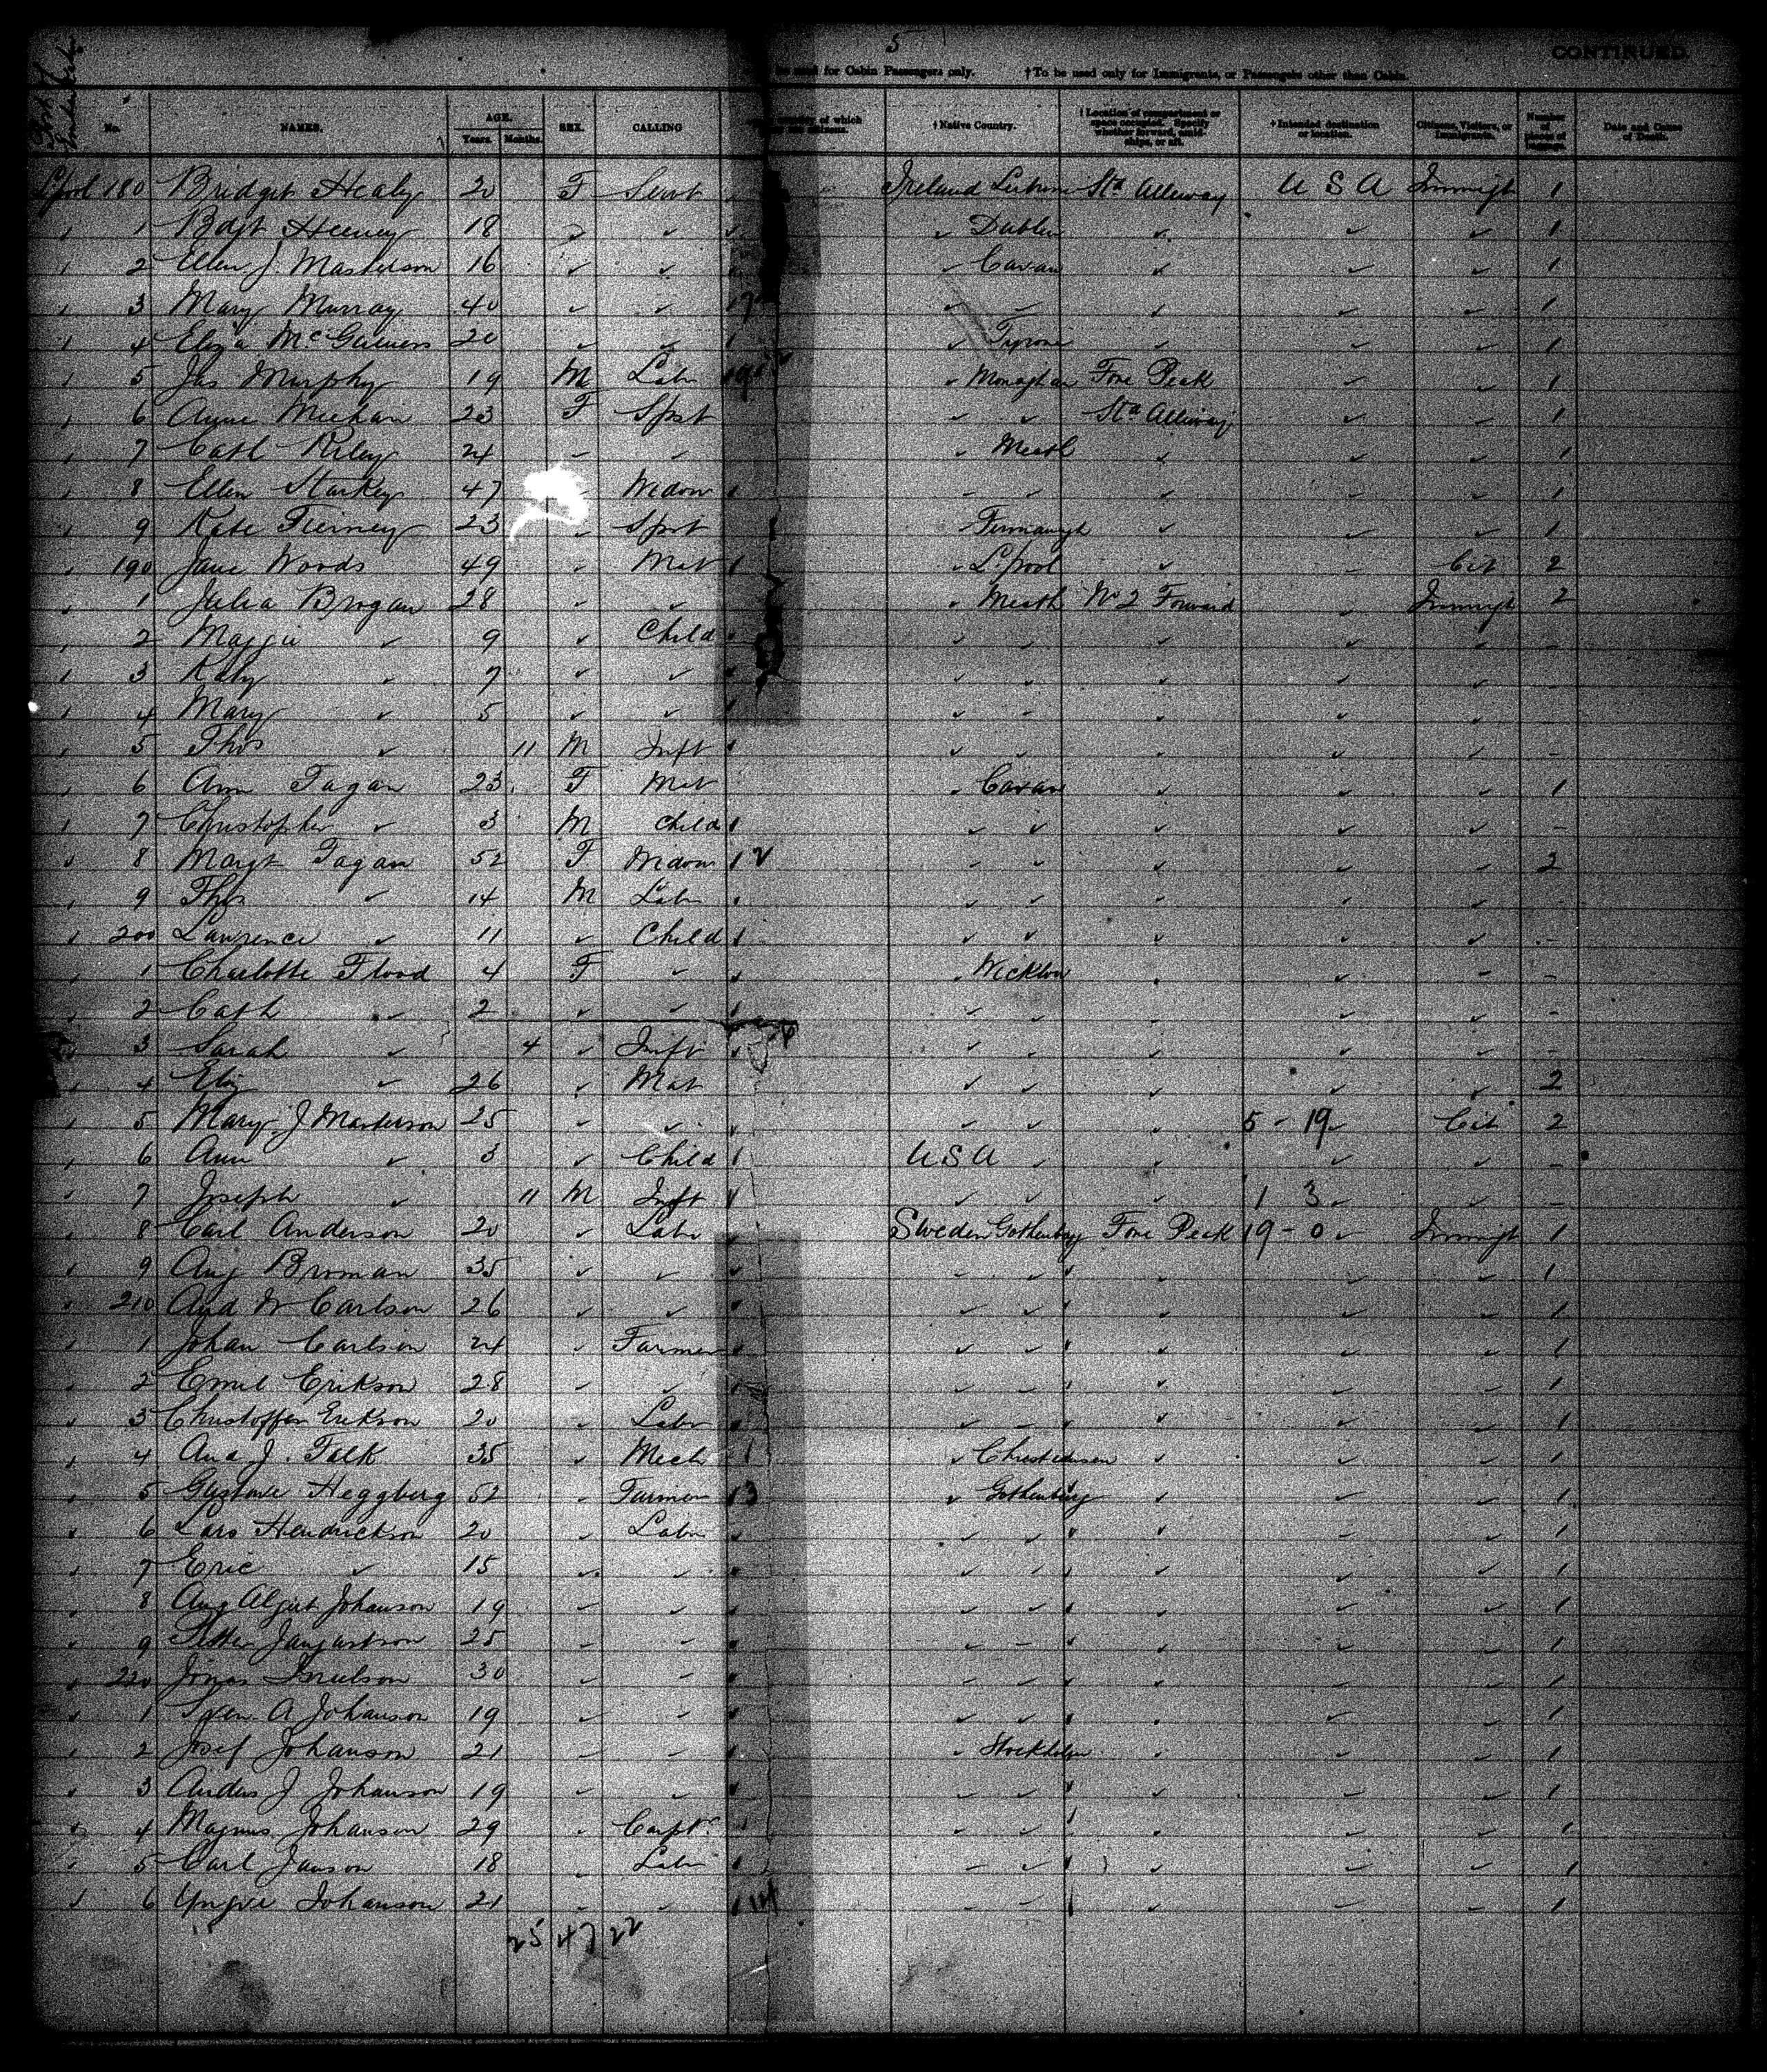 5
CONTINUED.
used for Cabin Passengers only. †To be used only for Immigrants, or Passengers other than Cabin.
No. NAMES. AGE. Years. Months. SEX. CALLING country of which †Native Country. †Location of compartment or space occupied. Specify whether forward, amidships, or aft. †Intended destination or location. Citizens, Visitors, or Immigrants. Number of pieces of baggage. Date and Cause of Death.
L'pool 180 Bridget Healy 20 F Servt Ireland Sta Alleway U S A Immigt 1
1 Bdgt Heeney 18 Dublin 1
2 Ellen J. Masterson 16 Cavan 1
3 Mary Murray 40 1
4 Eliza 20 Tyrone 1
5 Jas Murphy 19 M Labr Monaghan Fore Peak 1
6 Anne Meehan 23 F Spst Sta Alleway 1
7 Cath Riley 24 Meath 1
8 Ellen Starkey 47 Widow 1
9 Kate Tierney 23 Spst Fermanagh 1
190 Jane Woods 49 Mat L'pool Cit 2
1 Julia Brogan 28 Meath No 2 Forward Immigt 2
2 Maggie 9 Child
3 Katy 7
4 Mary 5
5 Thos 11 M Inft
6 Ann Fagan 23 F Mat Cavan 1
7 Christopher 3 M Child
8 Margt Fagan 52 F Widow 2
9 Thos 14 M Labr
200 Lawrence 11 Child
1 Charlotte Flood 4 F Wicklow
2 Cath 2
3 Sarah 4 Inft
4 Eliz 26 Mat 2
5 Mary J Masterson 25 5 - 19 Cit 2
6 Ann 3 Child U S A
7 Joseph 11 M Inft 1 3
8 Carl Anderson 20 Labr Sweden Gothenburg Fore Peak 19 - 0 Immigt 1
9 Aug Broman 35 1
210 And W Carlson 26 1
1 Johan Carlson 24 Farmer 1
2 Emil Erikson 28 1
3 Christoffer Erikson 20 Labr 1
4 And J. Falk 35 Mech 1
5 Gustave Heggberg 52 Farmer 13 Gothenburg 1
6 Lars Hendrickson 20 Labr 1
7 Eric 15 1
8 Aug Johanson 19 1
9 25 1
220 Jonas 30 1
1 Sven A Johanson 19 1
2 Josef Johanson 21 Stockholm 1
3 Anders J Johanson 19 1
4 Magnus Johanson 29 Carptr 1
5 Carl Janson 18 Labr 1
6 Yngve Johanson 21 1
25 47 22